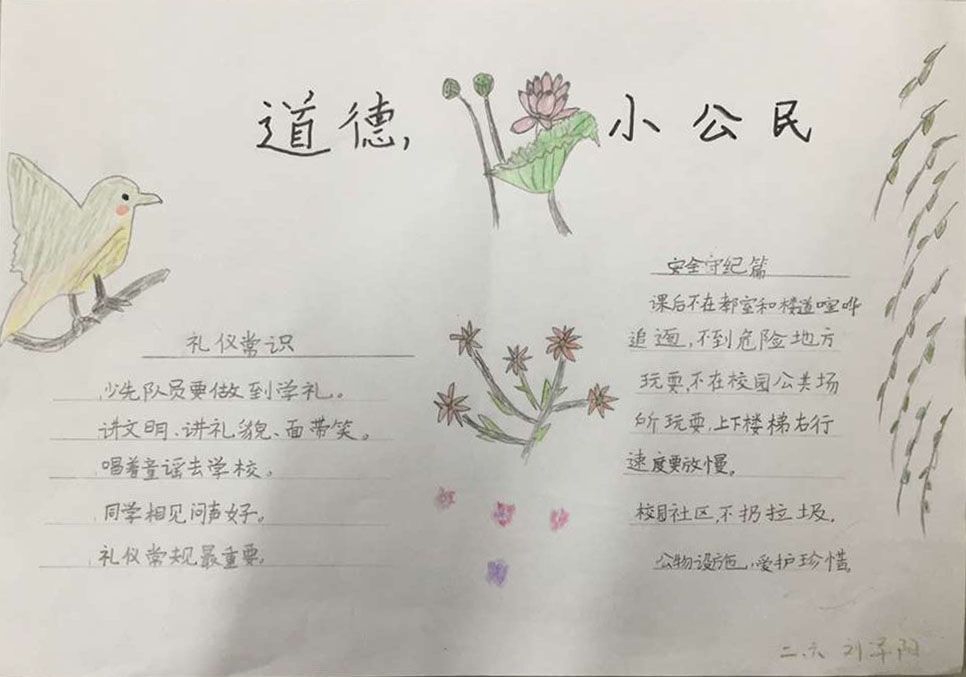 道德，小公民
礼仪常识
少先队员要做到学礼。
讲文明、讲礼貌、面带笑。
唱着童谣去学校。
同学相见问声好。
礼仪常规最重要，
安全守纪篇
课后不在教室和楼道喧哗
追逦，不到危险地方
玩耍，不在校园公共场
所玩耍，上下楼梯右行
速度要放慢。
校园社区，不扔垃圾，
公物设施，爱护珍惜。
二.六 刘泽阳